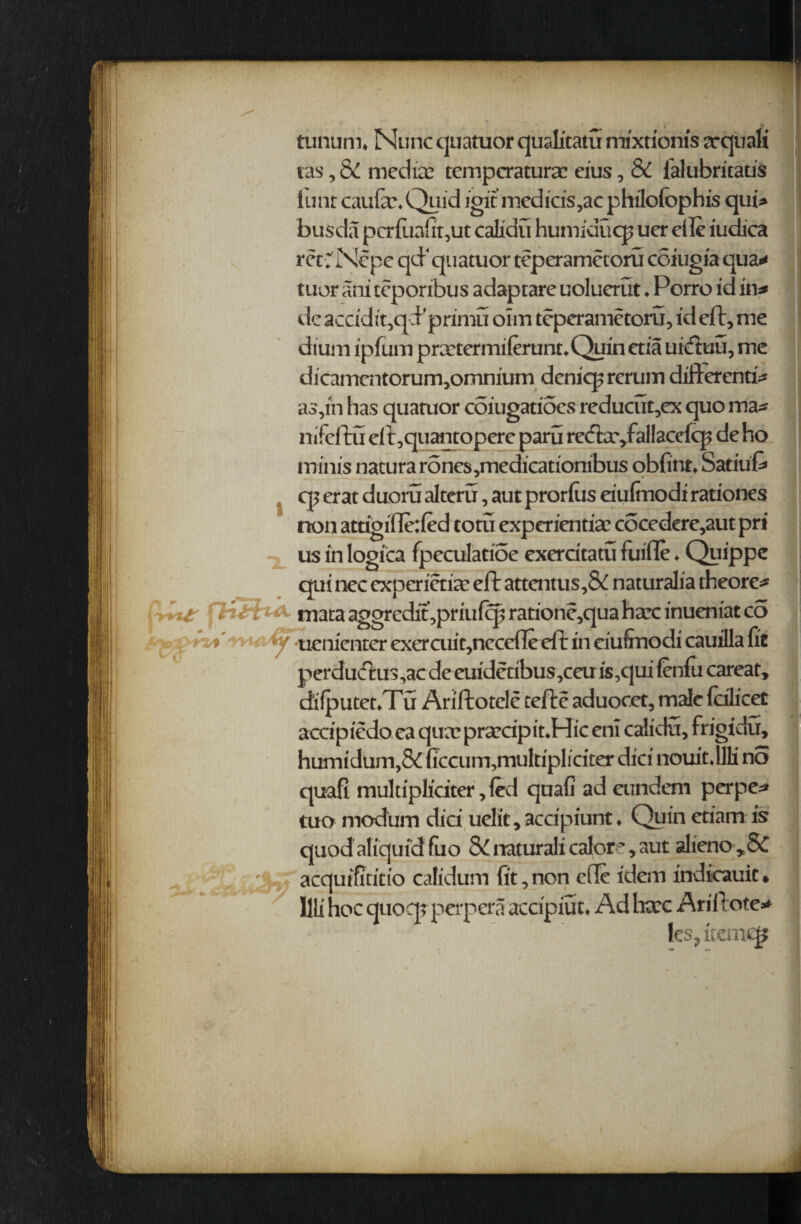 tunum. Nunc quatuor qualitatū mixtionis æquali
tas, & mediæ temperaturæ eius, & ſalubritatis
ſunt cauſæ. Quid igit̄ medicis, ac philoſophis qui-
busdā perſuaſit, ut calidū humidūq; uer eſſe iudica
rēt? Nēpe qđ quatuor tēperamētorū cōiugia qua-
tuor āni tēporibus adaptare uoluerūt. Porro id in-
de accidit, qđ primū oīm tēperamētorū, id eſt, me
dium ipſum prætermiſerunt. Quin etiā uictuū, me
dicamentorum, omnium deniq; rerum differenti-
as, in has quatuor cōiugatiōes reducūt, ex quo ma-
nifeſtū eſt, quantopere parū rectæ, fallaceſq; de ho
minis natura rōnes, medicationibus obſint. Satiuſ-
q; erat duorū alterū, aut prorſus eiuſmodi rationes
non attigiſſe: ſed totū experientiæ cōcedere, aut pri
us in logica ſpeculatiōe exercitatū fuiſſe. Quippe
qui nec experiētiæ eſt attentus, & naturalia theore-
mata aggredit̄, priuſq; rationē, qua hæc inueniat cō
uenienter exercuit, neceſſe eſt in eiuſmodi cauilla ſit
perductus, ac de euidētibus, ceu is, qui ſenſu careat,
diſputet. Tū Ariſtotelē teſtē aduocet, male ſcilicet
accipiēdo ea quæ præcipit. Hic enī calidū, frigidū,
humidum, & ſiccum, multipliciter dici nouit. Illi nō
quaſi multipliciter, ſed quaſi ad eundem perpe-
tuo modum dici uelit, accipiunt. Quin etiam is
quod aliquid ſuo & naturali calore, aut alieno, &
acquiſititio calidum ſit, non eſſe idem indicauit.
Illi hoc quoq; perperā accipiūt. Ad hæc Ariſtote-
les, itemq;